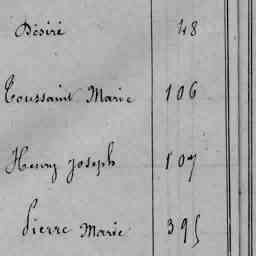 Désiré 48
Toussaint Marie 106
Henry Joseph 107
Pierre Marie 395